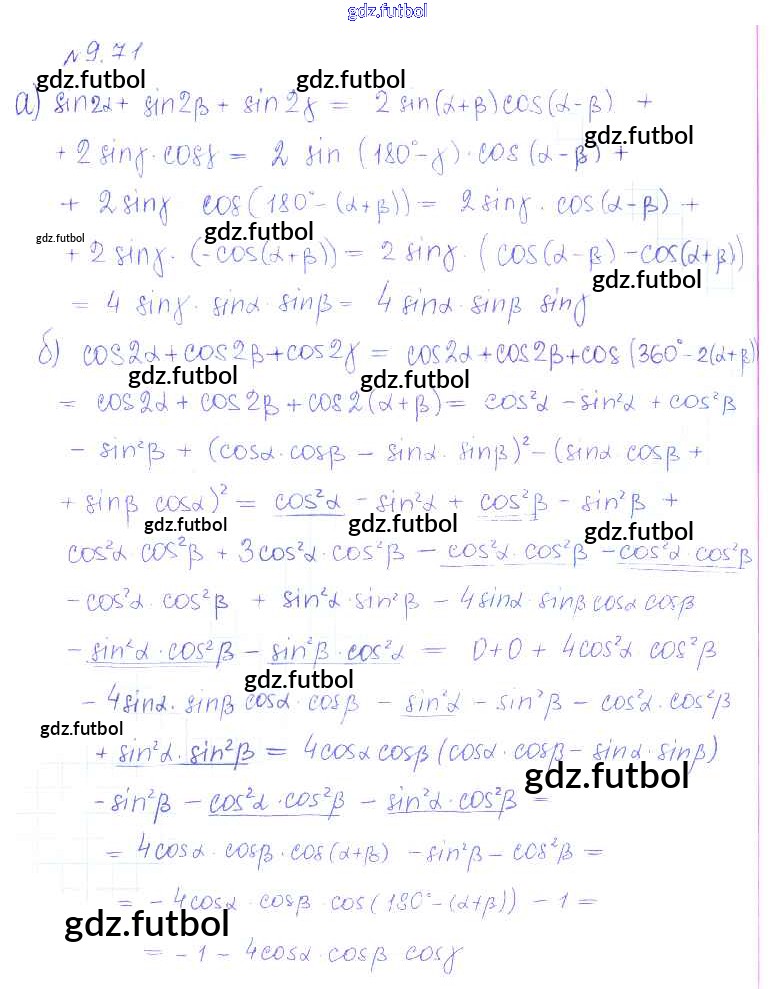 gdz.futbol
№9.71
gdz.futbol gdz.futbol
а) sin2α + sin2β + sin2γ = 2 sin(α+β)cos(α-β) +
gdz.futbol
+ 2 sinγ·cosγ = 2 sin (180°-γ)·cos(α-β) +
+ 2 sinγ cos(180°-(α+β)) = 2 sinγ · cos(α-β) +
gdz.futbol gdz.futbol
+ 2 sinγ · (-cos(α+β)) = 2 sinγ · (cos(α-β) - cos(α+β))
gdz.futbol
= 4 sinγ · sinα · sinβ = 4 sinα · sinβ sinγ
б) cos2α + cos2β + cos2γ = cos2α + cos2β + cos(360°-2(α+β))
gdz.futbol gdz.futbol
= cos2α + cos2β + cos2(α+β) = cos²α - sin²α + cos²β
- sin²β + (cosα·cosβ - sinα·sinβ)² - (sinα·cosβ +
+ sinβ cosα)² = cos²α - sin²α + cos²β - sin²β +
gdz.futbol gdz.futbol gdz.futbol
cos²α·cos²β + 3cos²α·cos²β - cos²α·cos²β - cos²α·cos²β
- cos²α·cos²β + sin²α·sin²β - 4sinα·sinβ cosα cosβ
- sin²α·cos²β - sin²β·cos²α = 0+0+ 4cos²α cos²β
gdz.futbol
- 4sinα·sinβ cosα·cosβ - sin²α - sin²β - cos²α·cos²β
gdz.futbol
+ sin²α·sin²β = 4cosα cosβ (cosα·cosβ - sinα·sinβ)
gdz.futbol
- sin²β - cos²α·cos²β - sin²α·cos²β =
= 4cosα·cosβ·cos(α+β) - sin²β - cos²β =
= - 4cosα·cosβ·cos(180°-(α+β)) - 1 =
gdz.futbol
= -1 - 4cosα·cosβ cosγ